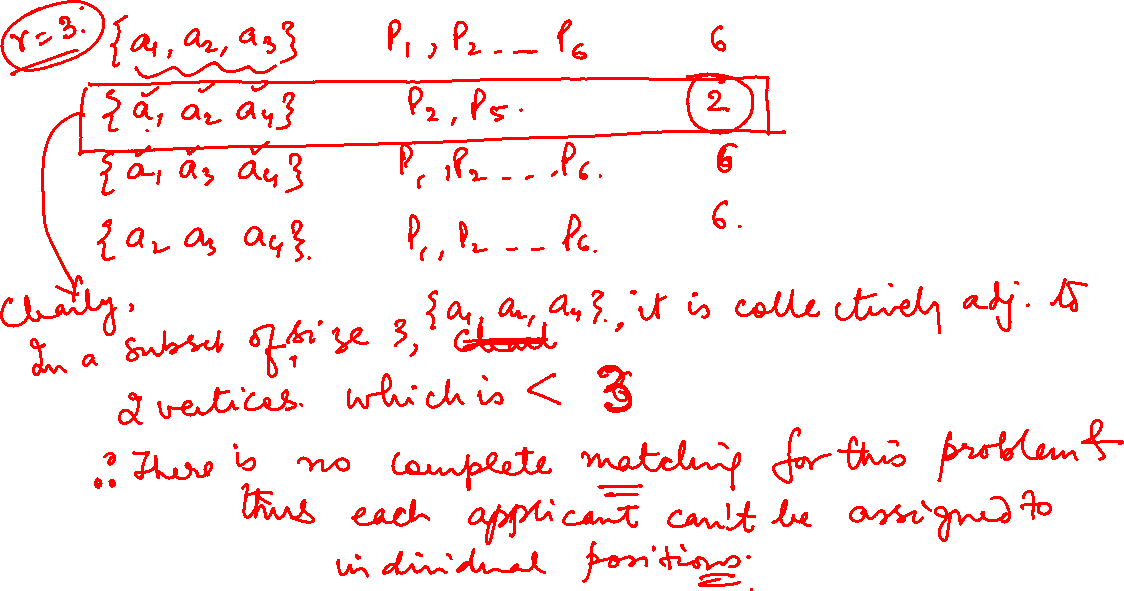 r = 3. {a1, a2, a3} P1, P2 --- P6 6
{a1 a2 a4} P2, P5. 2
{a1 a3 a4} P1, P2 --- P6. 6
{a2 a3 a4}. P1, P2 --- P6. 6.
Clearly,
In a subset of size 3, {a1, a2, a4}, it is collectively adj. to
2 vertices. which is < 3
∴ There is no complete matching for this problem &
thus each applicant can't be assigned to
individual positions.